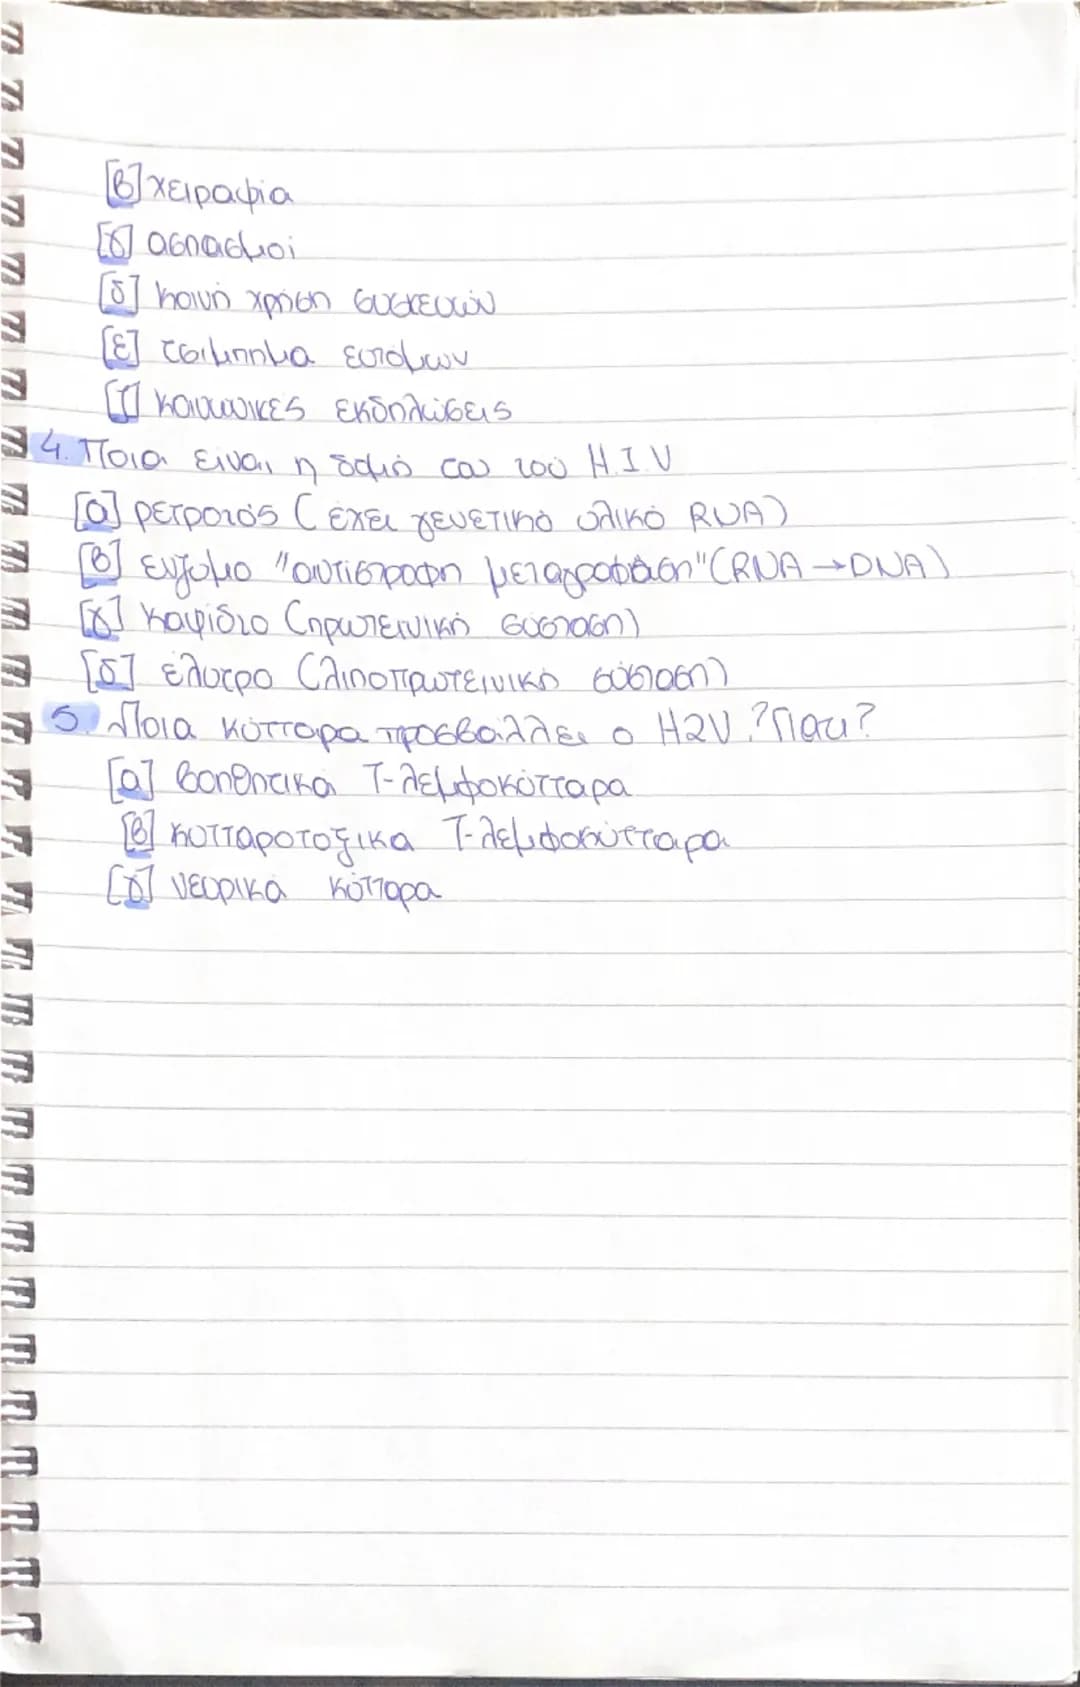 [β] χειραψία
[γ] ασπασμοί
[δ] κοινή χρήση συσκευών
[ε] τσίμπημα εντόμων
κοινωνικές εκδηλώσεις
4. Ποια είναι η δομή του H.I.V
[α] ρετροϊός (έχει γενετικό υλικό RNA)
[β] ένζυμο "αντίστροφη μεταγραφάση" (RNA → DNA)
[γ] καψίδιο (πρωτεϊνική σύσταση)
[δ] έλυτρο (λιποπρωτεϊνική σύσταση)
5. Ποια κύτταρα προσβάλλει ο H2V? Γιατί?
[α] βοηθητικά Τ-λεμφοκύτταρα
[β] κυτταροτοξικά Τ-λεμφοκύτταρα
[γ] νευρικά κύτταρα